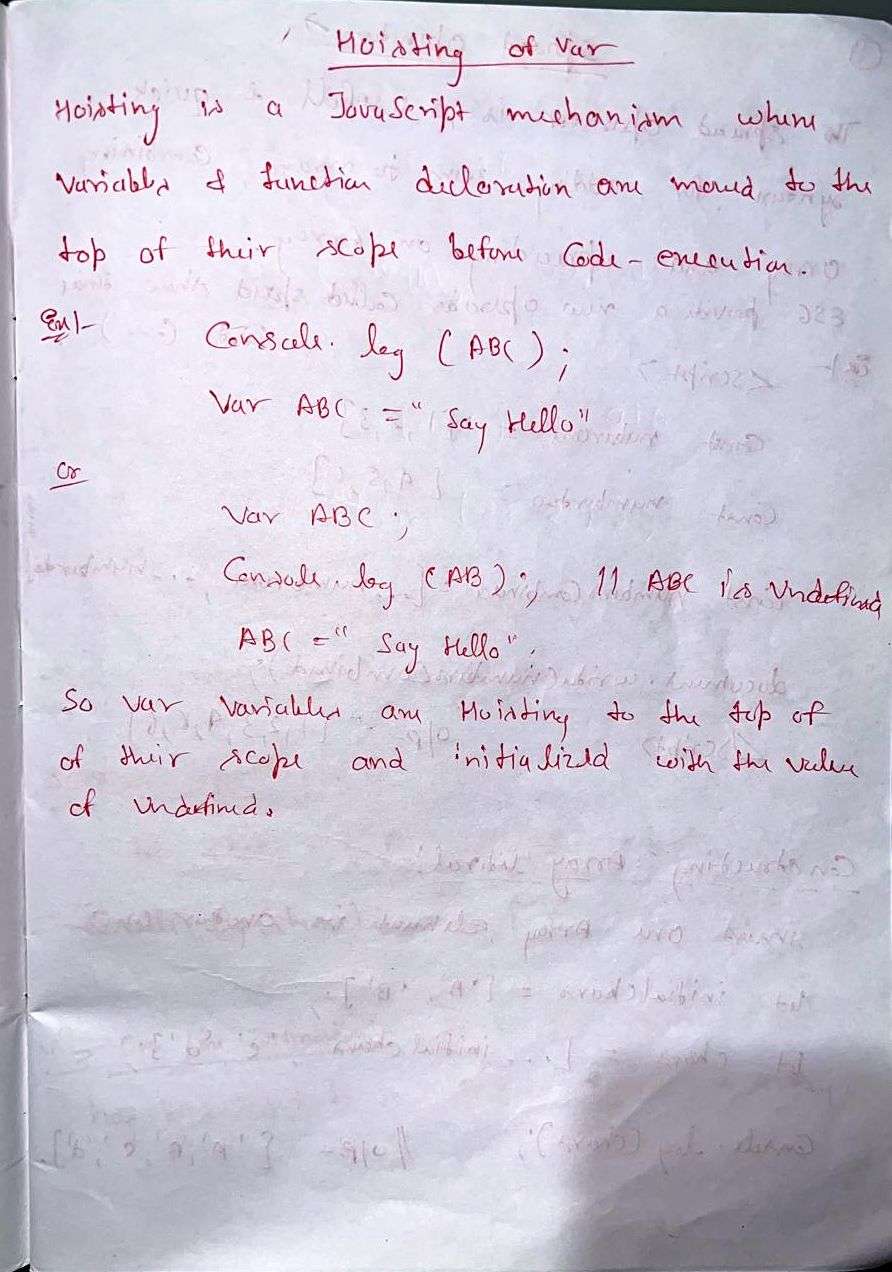 Hoisting of Var
Hoisting is a JavaScript mechanism where
Variables & function decleration are moved to the
top of their scope before Code-execution.
Ex!-
Console. log (ABC);
Var ABC = "Say Hello"
Or
Var ABC ;
Console log (AB); // ABC is Undefined
ABC = "Say Hello".
So var variables are Hoisting to the top of
of their scope and initialized with the value
of Undefined.